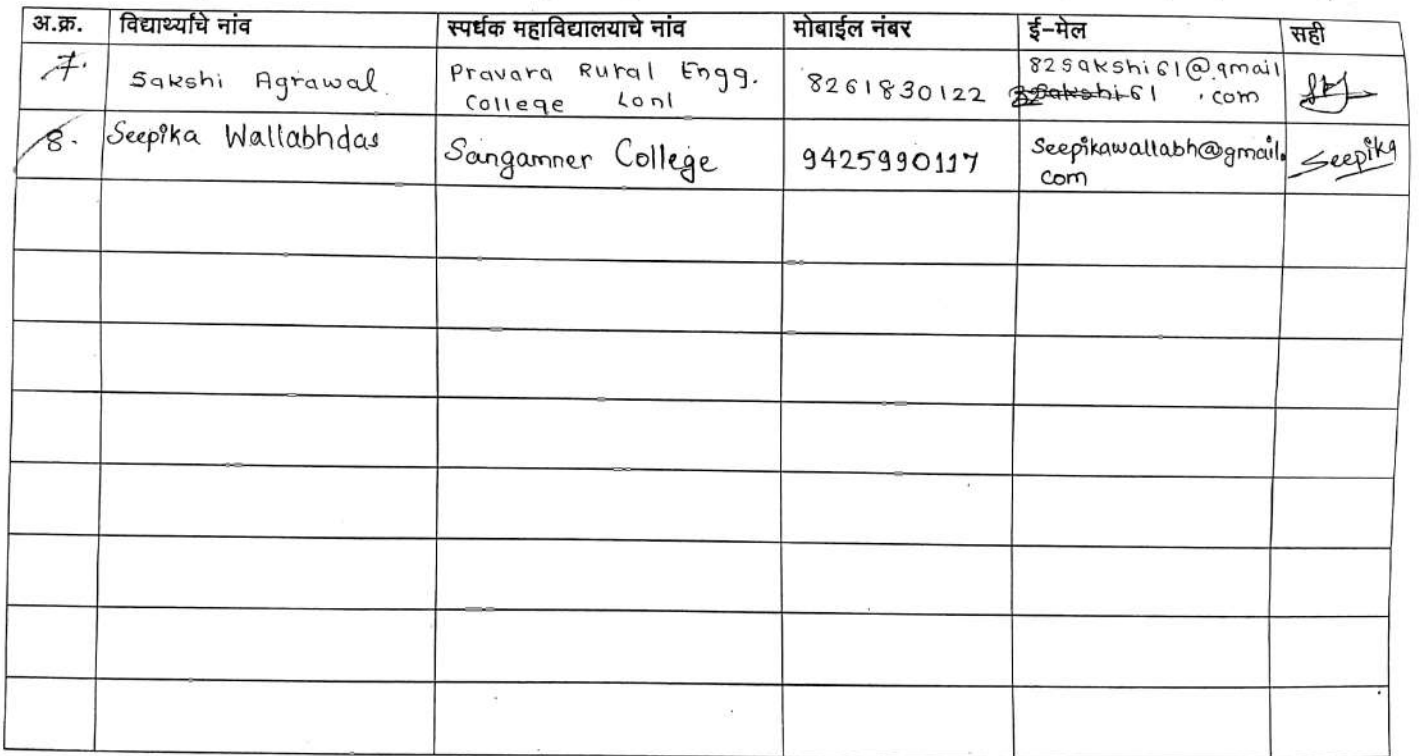 अ.क्र. विद्यार्थ्याचे नांव स्पर्धक महाविद्यालयाचे नांव मोबाईल नंबर ई-मेल सही
7. Sakshi Agrawal. Pravara Rural Engg. 8261830122 82sakshi61@gmail
College Loni .com
8. Seepika Wallabhdas Sangamner College 9425990117 Seepikawallabh@gmail. Seepika
com